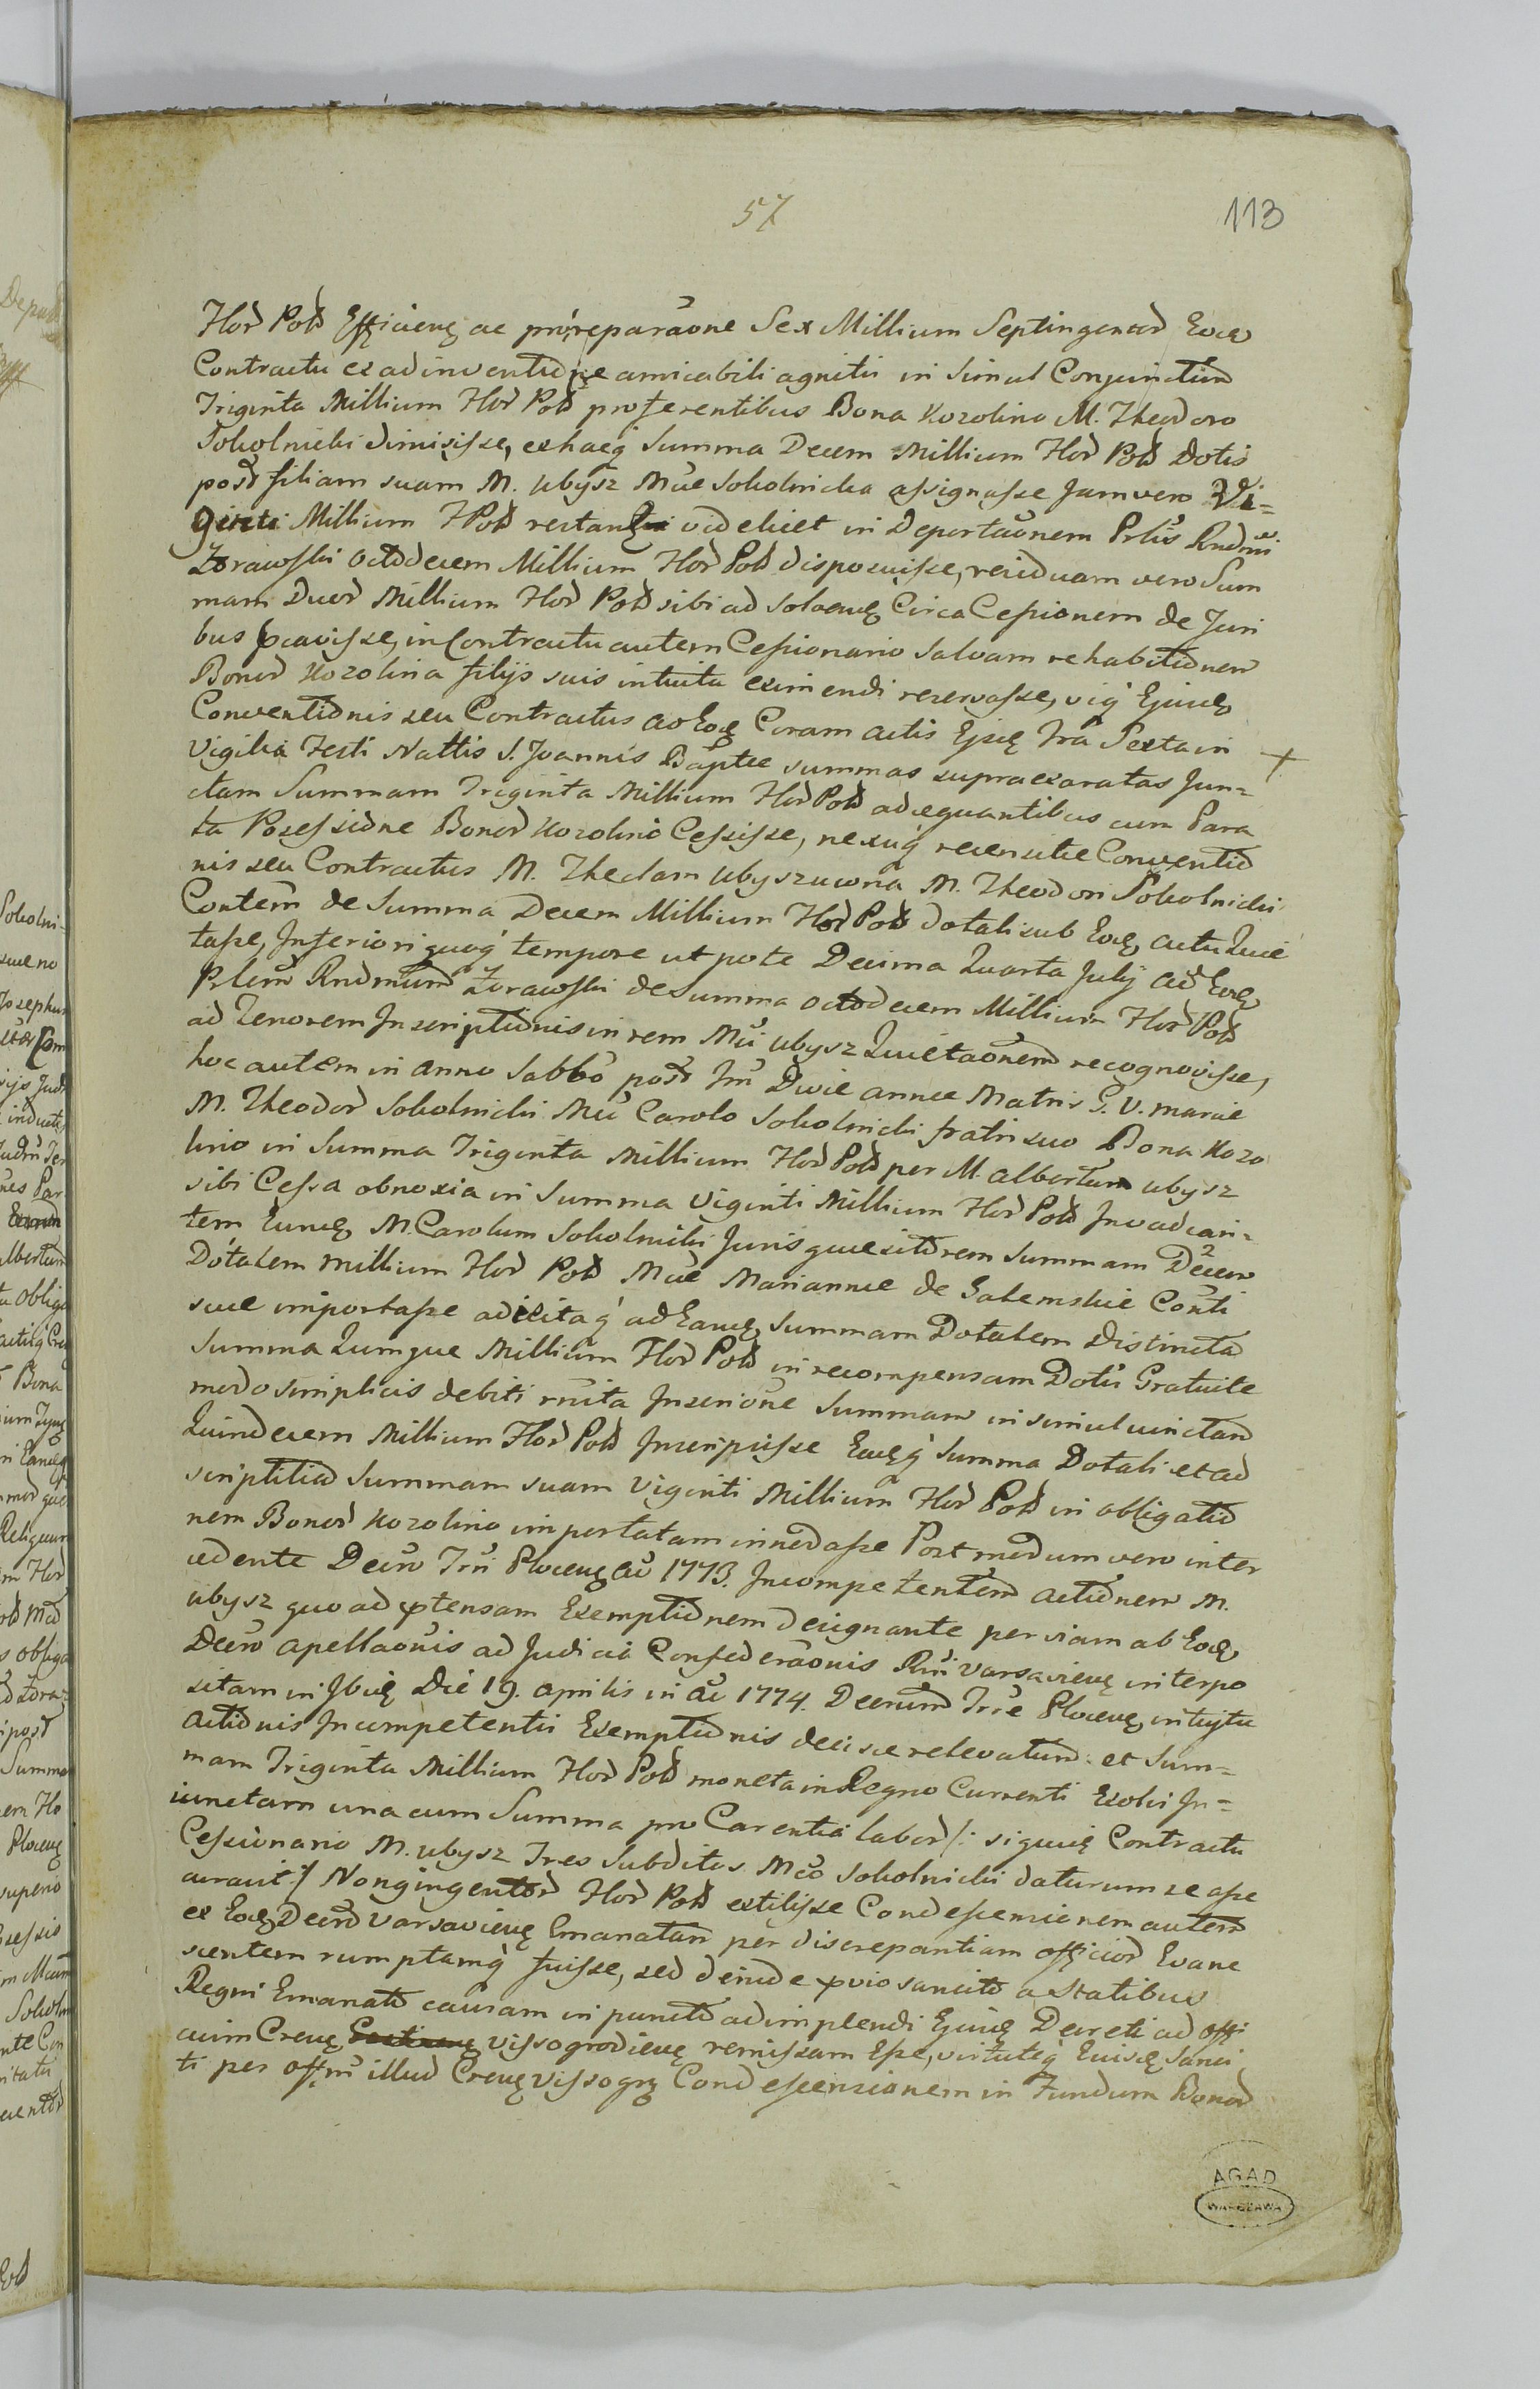 57
113
Flor Pold Efficiens ac pro reparaone Sex Millium Septingentor Eodem
Contractu ex adinventione amicabili agnitis in simul Conjunctim
Triginta Millium Flor Pold proferentibus Bona Kozolino M. Theodoro
Sokolnicki dimisisse, ex hacq Summa Decem Millium Flor Pold Dotis
post filiam suam M. Ubysz Mcae Sokolnicka assignasse Jam vero Vi=
ginti Millium F Pold restan videlicet in Deportaonem Prlis Rndmi
Zorawski octodecem Millium Flor Pold disposuisse, residuam vero Sum
mam Duor Millium Flor Pold sibi ad solvens Circa Cessionem de Juri
bus pcavisse, in Contractu autem Cessionario salvam rehabitionem
Bonor Kozolina filijs suis intuitu eximendi reservasse, vigq Ejusdem
Conventionis seu Contractus ac Eodem Coram actis Ejusdem Fra Sexta in
Vigilia Festi Nattis S. Joannis Baptae summas supraexaratas Jun=
+
ctam Summam Triginta Millium Flor Pold adequantibus cum Para
ta Possessione Bonor Kozolino Cessisse, nexuq recensitae Conventio
nis seu Contractus M. Theclam Ubyszuwna M. Theodori Sokolnicki
Contem de Summa Decem Millium Flor Pold dotali sub Eodem actu Quie
tasse, Inferiori quoq tempore ut pote Decima Quarta July ad Eodem
Prlem Rndmum Zorawski de Summa octodecem Millium Flor Pold
ad Tenorem Inscriptionis in rem Mci Ubysz Quietaonem recognovisse,
hoc autem in anno Sabbo post Fm Divae Annae Matris G. V. Mariae
M. Theodor Sokolnicki Mco Carolo Sokolnicki fratri suo Bona Kozo
lino in Summa Triginta Millium Flor Pold per M. Albertum Ubysz
sibi Cessa obnoxia in Summa Viginti Millium Flor Pold Invadian=
tem Eundem M. Carolum Sokolnicki Juris quaesitorem Summam Decem
2
Dotalem Millium Flor Pold Mcae Mariannae de Galemskie Conti
suae importasse adjectaq ad Eandem Summam Dotalem distincta
Summa Quinque Millium Flor Pold in recompensam Dotis Gratuite
modo simplicis debiti mita Inscrione Summam in simul iunctam
Quindecem Millium Flor Pold Inscripisse Eademq Summa Dotali et ad
scriptitia Summam suam Viginti Millium Flor Pold in obligatio
nem Bonor Kozolino importatam innodasse Postmodum vero inter
cedente Decro Trii Plocens ao 1773. Incompetentem actionem M.
Ubysz quoad ptensam Exemptionem designante per viam ab Eodem
Decro apellaonis ad Judicia Confederaonis Rni Varsaviens interpo
sitam in Ibidem Die 19. aprilis in ao 1774. Decrum Trie Plocens, intuitu
actionis Incumpetentis Exemptionis decisae relevatum et Sum=
mam Triginta Millium Flor Pold moneta in Regno Currenti Exolvi In=
iunctam una cum Summa pro Carentia labor /: siquidem Contractu
Cessionario M. Ubysz Tres Subditos Mco Sokolnicki daturum se asse
curavit :/ Nongingentor Flor Pold extitisse Condescensionem autem
ex Eodem Decro Varsaviens Emanatam per discrepantiam officior Evane
scentem rumptamq fuisse, sed deinde pvio sancito a Statibus
Regni Emanato causam in puncto adimplendi Ejusdem Decreti ad offi
cium Crens Vissogrodiens remissam Esse, virtuteq Euisdem Sanci
ti per offm illud Crens Vissogrs Condescensionem in Fundum Bonor
AGAD
WARSZAWA